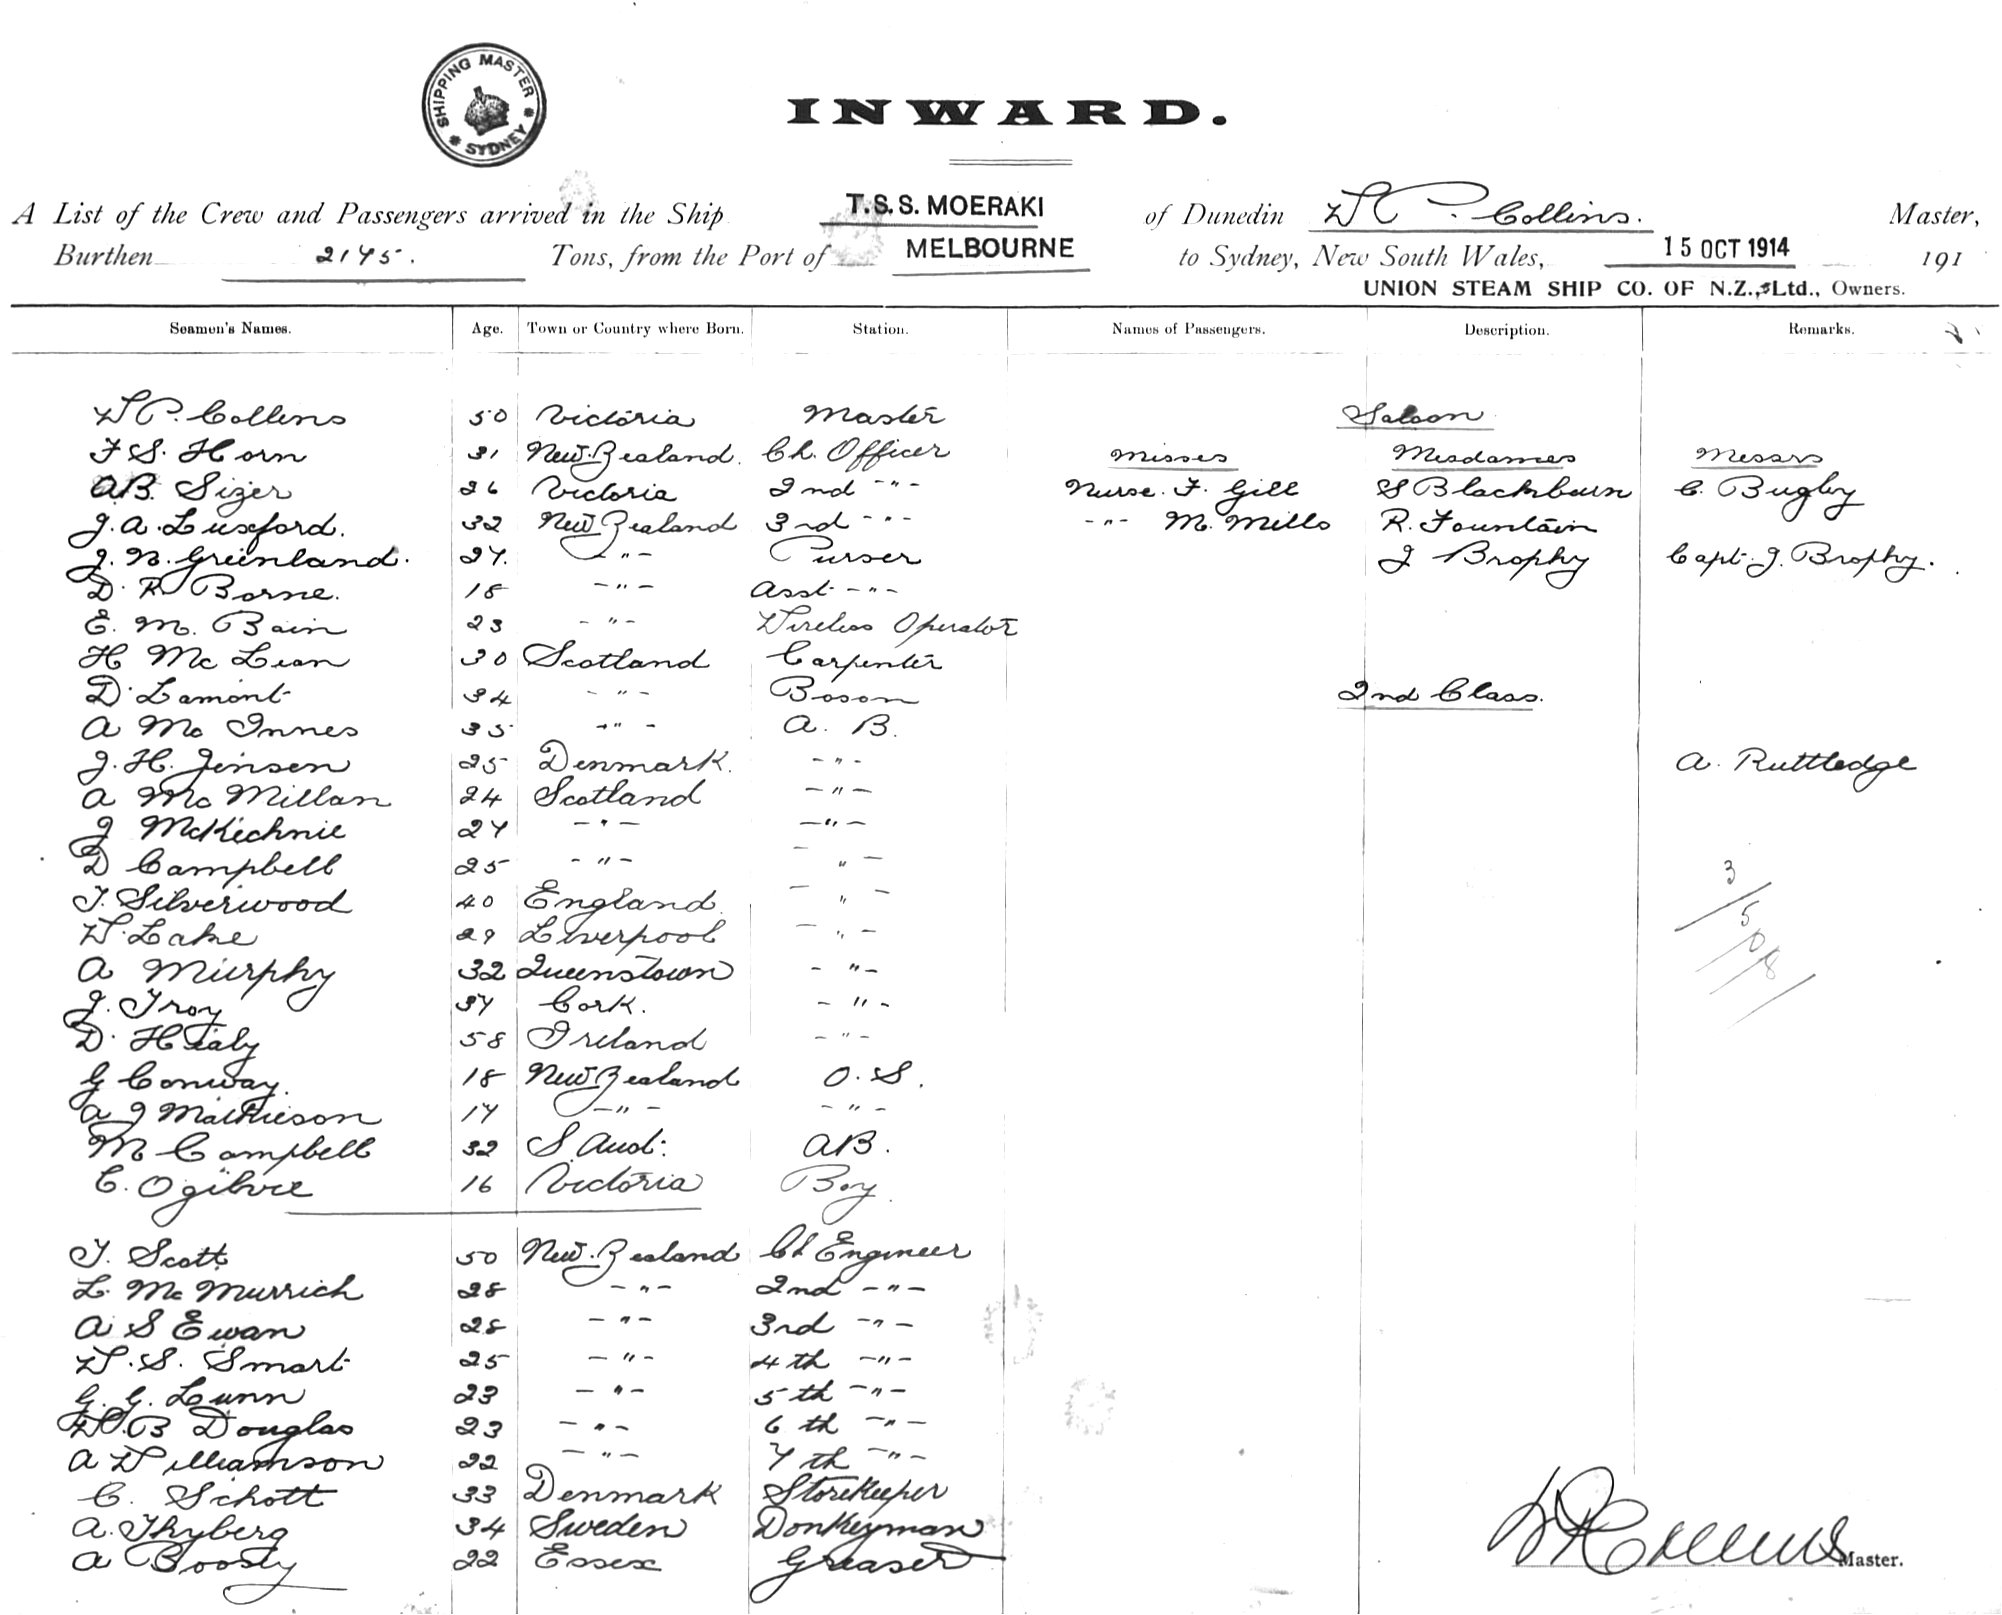 SHIPPING MASTER
SYDNEY
INWARD.
A List of the Crew and Passengers arrived in the Ship T.S.S. MOERAKI of Dunedin W P. Collins. Master,
Burthen 2145. Tons, from the Port of MELBOURNE to Sydney, New South Wales, 15 OCT 1914 191
UNION STEAM SHIP CO. OF N.Z., Ltd., Owners.
Seamen's Names. Age. Town or Country where Born. Station. Names of Passengers. Description. Remarks.
W P. Collins 50 Victoria Master Saloon
F S. Horn 31 New Zealand. Ch. Officer Misses Mesdames Messrs
A.B. Sizer 26 Victoria 2nd -"- Nurse. F. Gill S Blackburn C. Bugby
J. A. Luxford. 32 New Zealand 3rd -"- -"- M. Mills R. Fountain
J. N. Greenland. 27. -"- Purser J Brophy Capt. J. Brophy.
D. R Borne. 18 -"- Asst -"-
E. M. Bain 23 -"- Wireless Operator
H Mc Lean 30 Scotland Carpenter
D. Lamont 34 -"- Boson 2nd Class.
A Mc Innes 35 -"- A. B.
J. H. Jensen 25 Denmark. -"- A. Ruttledge
A Mc Millan 24 Scotland -"-
J McKechnie 27 -"- -"-
D Campbell 25 -"- " -
T. Silverwood 40 England - " -
W. Lake 29 Liverpool - " -
A Murphy 32 Queenstown - "-
J. Troy 37 Cork. - " -
D. Healy 58 Ireland - " -
G Conway. 18 New Zealand O. S.
A J Mathieson 17 -"- - " -
M Campbell 32 S. Aust. AB.
C. Ogilvie 16 Victoria Boy.
T. Scott 50 New. Zealand Ch Engineer
L. Mc Murrich 28 -"- 2nd -"-
A S Ewan 28 -"- 3rd -"-
W. S. Smart 25 -"- 4th -"-
G. G. Lunn 23 -"- 5th -"-
W. B Douglas 23 -"- 6th -"-
A Williamson 22 -"- 7th -"-
C. Schott 33 Denmark Storekeeper
A. Thyberg 34 Sweden Donkeyman
A Boosty 22 Essex Greaser
W P Collins Master.